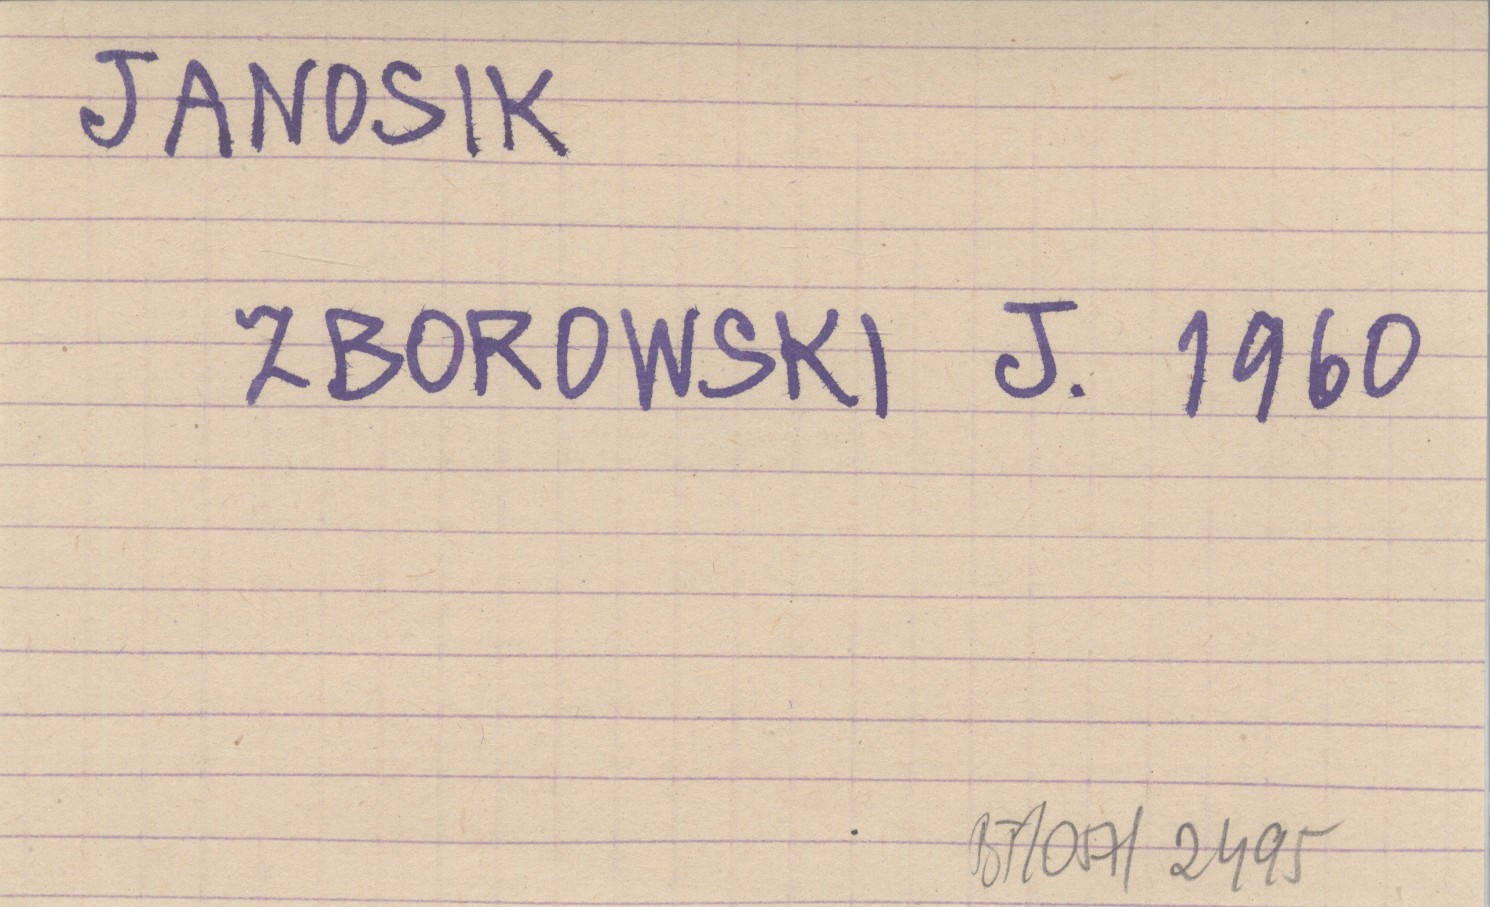 JANOSIK
ZBOROWSKI J. 1960
BT/057/ 2495